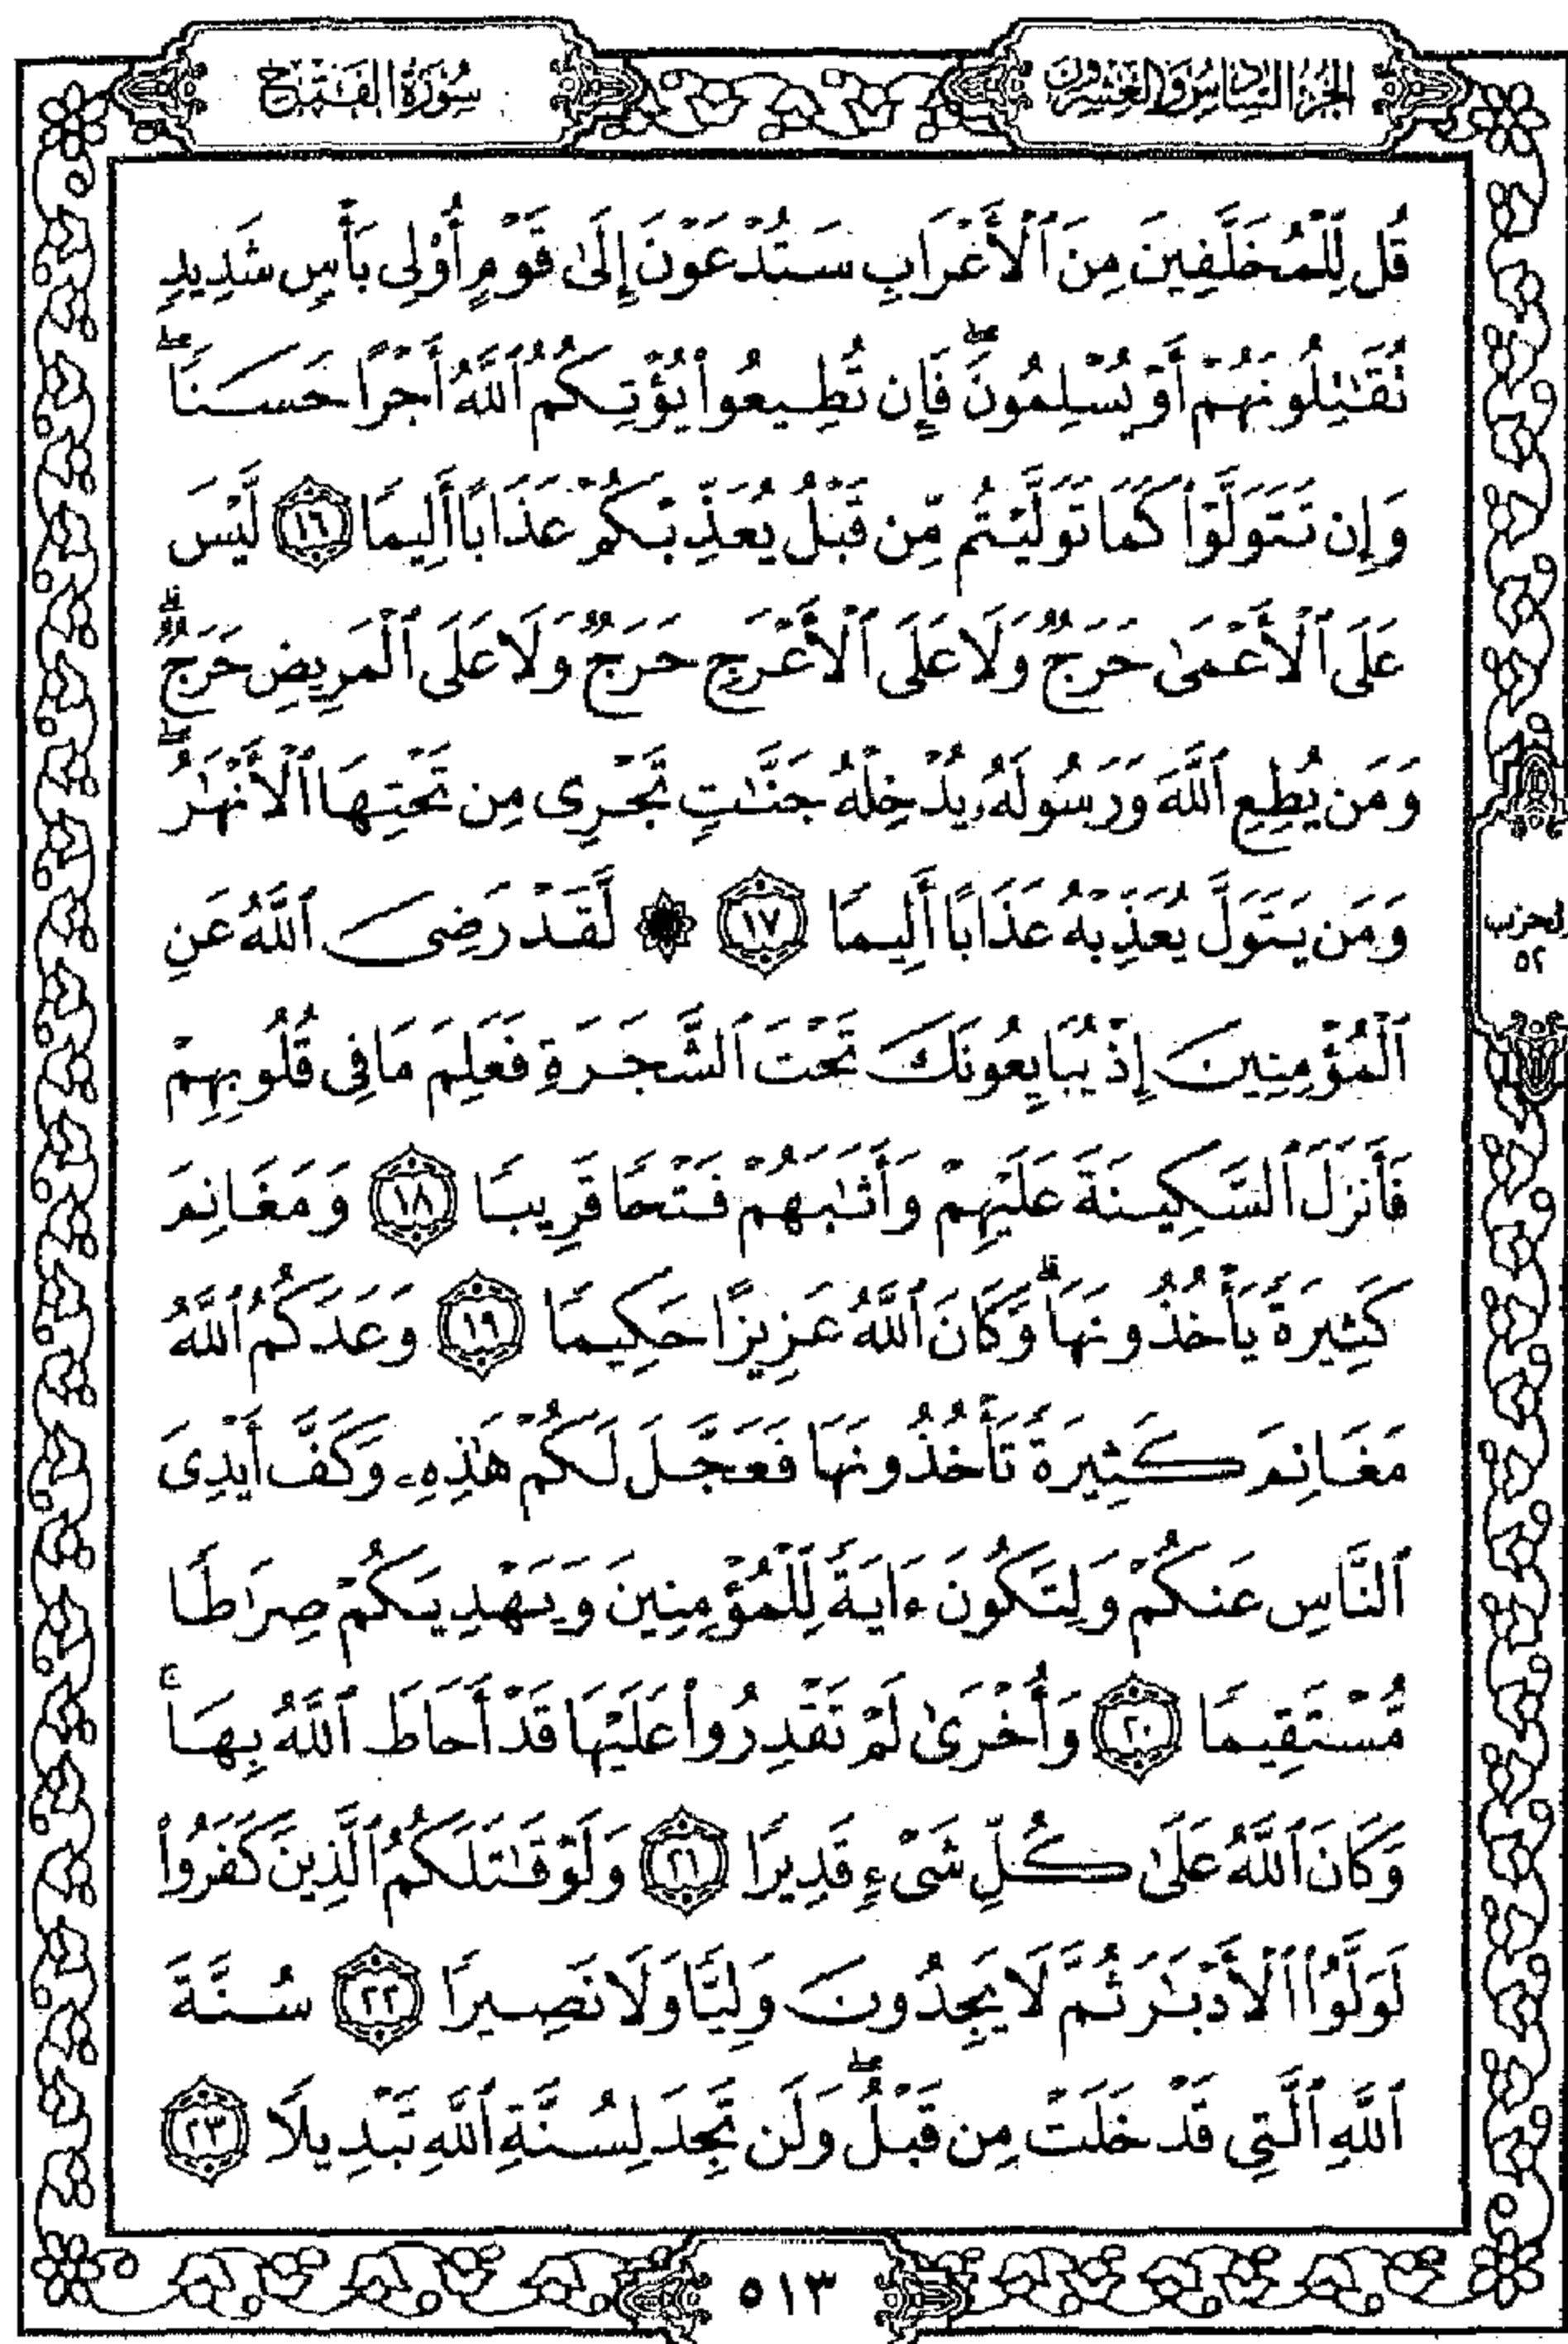 الجزء السادس والعشرون
سُورَةُ الفَتْحِ
قُل لِّلْمُخَلَّفِينَ مِنَ ٱلْأَعْرَابِ سَتُدْعَوْنَ إِلَىٰ قَوْمٍ أُو۟لِى بَأْسٍ شَدِيدٍ
تُقَـٰتِلُونَهُمْ أَوْ يُسْلِمُونَ ۖ فَإِن تُطِيعُوا۟ يُؤْتِكُمُ ٱللَّهُ أَجْرًا حَسَنًا ۖ
وَإِن تَتَوَلَّوْا۟ كَمَا تَوَلَّيْتُم مِّن قَبْلُ يُعَذِّبْكُمْ عَذَابًا أَلِيمًا ١٦ لَّيْسَ
عَلَى ٱلْأَعْمَىٰ حَرَجٌ وَلَا عَلَى ٱلْأَعْرَجِ حَرَجٌ وَلَا عَلَى ٱلْمَرِيضِ حَرَجٌ ۗ
وَمَن يُطِعِ ٱللَّهَ وَرَسُولَهُۥ يُدْخِلْهُ جَنَّـٰتٍ تَجْرِى مِن تَحْتِهَا ٱلْأَنْهَـٰرُ ۖ
وَمَن يَتَوَلَّ يُعَذِّبْهُ عَذَابًا أَلِيمًا ١٧ ۞ لَّقَدْ رَضِىَ ٱللَّهُ عَنِ
ٱلْمُؤْمِنِينَ إِذْ يُبَايِعُونَكَ تَحْتَ ٱلشَّجَرَةِ فَعَلِمَ مَا فِى قُلُوبِهِمْ
فَأَنزَلَ ٱلسَّكِينَةَ عَلَيْهِمْ وَأَثَـٰبَهُمْ فَتْحًا قَرِيبًا ١٨ وَمَغَانِمَ
كَثِيرَةً يَأْخُذُونَهَا ۗ وَكَانَ ٱللَّهُ عَزِيزًا حَكِيمًا ١٩ وَعَدَكُمُ ٱللَّهُ
مَغَانِمَ كَثِيرَةً تَأْخُذُونَهَا فَعَجَّلَ لَكُمْ هَـٰذِهِۦ وَكَفَّ أَيْدِىَ
ٱلنَّاسِ عَنكُمْ وَلِتَكُونَ ءَايَةً لِّلْمُؤْمِنِينَ وَيَهْدِيَكُمْ صِرَٰطًا
مُّسْتَقِيمًا ٢٠ وَأُخْرَىٰ لَمْ تَقْدِرُوا۟ عَلَيْهَا قَدْ أَحَاطَ ٱللَّهُ بِهَا ۚ
وَكَانَ ٱللَّهُ عَلَىٰ كُلِّ شَىْءٍ قَدِيرًا ٢١ وَلَوْ قَـٰتَلَكُمُ ٱلَّذِينَ كَفَرُوا۟
لَوَلَّوُا۟ ٱلْأَدْبَـٰرَ ثُمَّ لَا يَجِدُونَ وَلِيًّا وَلَا نَصِيرًا ٢٢ سُنَّةَ
ٱللَّهِ ٱلَّتِى قَدْ خَلَتْ مِن قَبْلُ ۖ وَلَن تَجِدَ لِسُنَّةِ ٱللَّهِ تَبْدِيلًا ٢٣
الحزب
٥٢
٥١٣